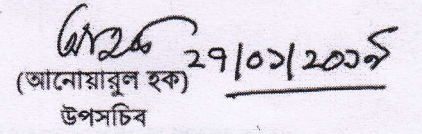 ২৭/০১/২০১৯
(আনোয়ারুল হক)
উপসচিব